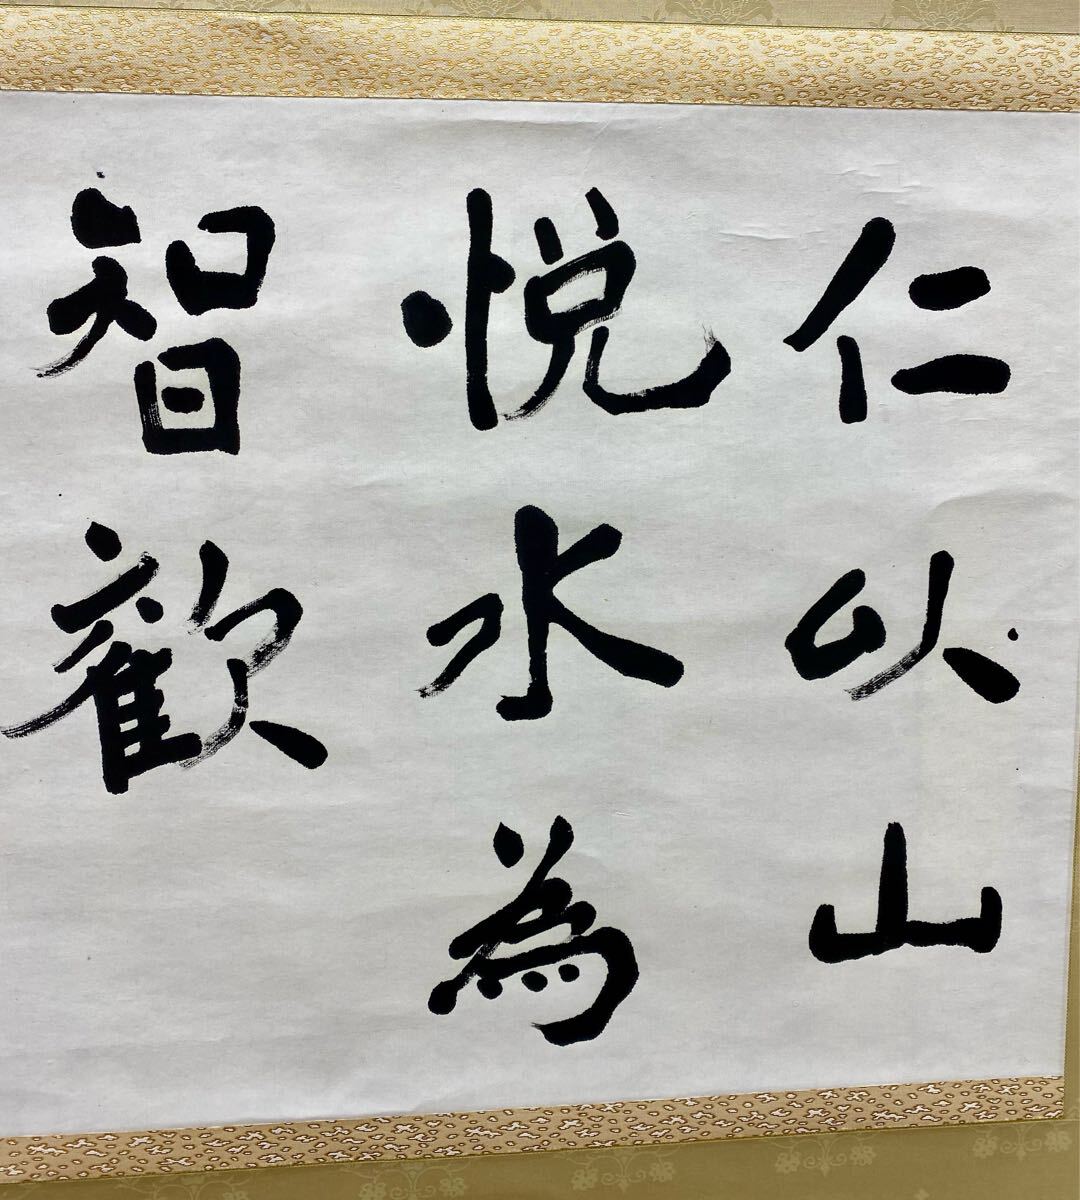 仁以山
悦水為
智歓